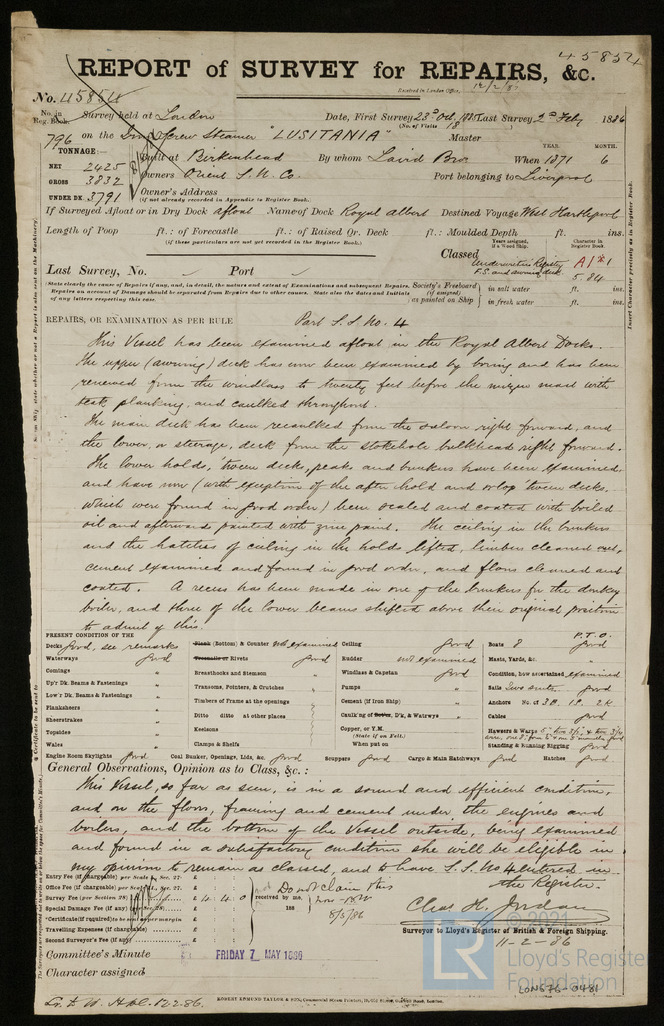 45854
REPORT of SURVEY for REPAIRS, &c.
Received in London Office, 12/2/8
No. 45854
No. in Reg. Book. Survey held at London Date, First Survey 23d Oct. 1885 Last Survey 2nd Feby 1886
(No. of Visits 18
796 on the Screw Steamer "LUSITANIA" Master
TONNAGE: YEAR. MONTH.
Built at Birkenhead By whom Laird Bros When 1871 6
NET 2425
GROSS 3832
UNDER DK. 3791
Owners Orient S. N. Co. Port belonging to Liverpool
Owner's Address
(if not already recorded in Appendix to Register Book.)
If Surveyed Afloat or in Dry Dock afloat Name of Dock Royal Albert Destined Voyage West Hartlepool
Length of Poop ft.: of Forecastle ft.: of Raised Qr. Deck ft.: Moulded Depth ft. ins.
(if these particulars are not yet recorded in the Register Book.)
Years assigned, if a Wood Ship. Character in Register Book.
Classed
Underwriters Registry A1 1
F.S. and awning deck 5.84
Last Survey, No. Port
(State clearly the cause of Repairs if any, and, in detail, the nature and extent of Examinations and subsequent Repairs.
Repairs on account of Damage should be separated from Repairs due to other causes. State also the dates and Initials
of any letters respecting this case.
Society's Freeboard (if assigned) as painted on Ship
in salt water ft. ins.
in fresh water ft. ins.
Insert Character precisely as in Register Book.
REPAIRS, OR EXAMINATION AS PER RULE Part S.S. No. 4
This Vessel has been examined afloat in the Royal Albert Docks.
The upper (awning) deck has now been examined by boring and has been
renewed from the windlass to twenty feet before the mizen mast with
teak planking, and caulked throughout.
The main deck has been recaulked from the saloon right forward, and
the lower, or steerage, deck from the stokehole bulkhead right forward.
The lower holds, 'tween decks, peaks and bunkers have been examined
and have now (with exception of the after hold and orlop 'tween decks,
which were found in good order) been scaled and coated with boiled
oil and afterwards painted with zinc paint. The ceiling in the bunkers
and the hatches of ceiling in the holds lifted, limbers cleaned out,
cement examined and found in good order, and floors cleaned and
coated. A recess has been made in one of the bunkers for the donkey
boiler, and three of the lower beams shifted above their original position
to admit of this.
P.T.O.
PRESENT CONDITION OF THE
Decks good, see remarks
Waterways good
Comings "
Up'r Dk. Beams & Fastenings "
Low'r Dk. Beams & Fastenings "
Planksheers "
Sheerstrakes "
Topsides "
Wales "
Plank (Bottom) & Counter not examined
Treenails or Rivets good
Breasthooks and Stemson "
Transoms, Pointers, & Crutches
Timbers of Frame at the openings
Ditto ditto at other places
Keelsons
Clamps & Shelfs
Ceiling good
Rudder not examined
Windlass & Capstan good
Pumps "
Cement (if Iron Ship) "
Caulk'ng of Botm, D'k, & Watrways "
Copper, or Y.M.
(State if on Felt.)
When put on
Boats 8 good
Masts, Yards, &c. "
Condition, how ascertained examined
Sails good
Anchors No. of 3B. 1S. 2K
Cables good
Hawsers & Warps
Standing & Running Rigging good
Engine Room Skylights good Coal Bunker, Openings, Lids, &c. good Scuppers good Cargo & Main Hatchways good Hatches good
General Observations, Opinion as to Class, &c.:
This Vessel, so far as seen, is in a sound and efficient condition,
and on the floors, framing and cement under the engines and
boilers, and the bottom of the Vessel outside, being examined
and found in a satisfactory condition she will be eligible in
my opinion to remain as classed, and to have S.S. No 4 entered in
the Register.
Entry Fee (if chargeable) per Sec. 27.
Office Fee (if chargeable) per Sec. 27.
Survey Fee (per Section 28) £ 4 : 4 : 0
Special Damage Fee (if any) (per Section 28)
*Certificate (if required) to be sent as per margin
Travelling Expenses (if chargeable)
Second Surveyor's Fee (if any)
received by me,
188
Do not claim this
8/5/86
Chas H. Jordan
Surveyor to Lloyd's Register of British & Foreign Shipping.
11-2-86
Committee's Minute FRIDAY 7 MAY 1886
Character assigned
ROBERT EDMUND TAYLOR & SON, Commercial Steam Printers, 19, Old Street, Goswell Road, London.
LR
© 2021
Lloyd's Register
Foundation
LON676-0481